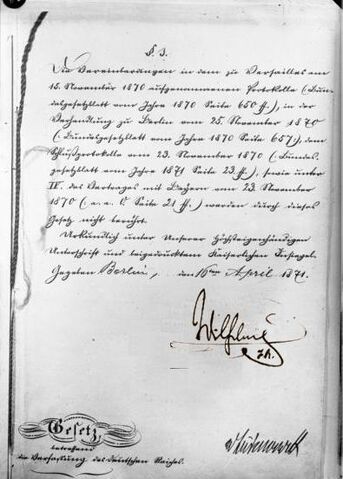 § 3.
Die Vereinbarungen in dem zu Versailles am
15. November 1870 aufgenommenen Protokolle (Bun-
desgesetzblatt vom Jahre 1870 Seite 650 ff.), in der
Verhandlung zu Berlin vom 25. November 1870
(Bundesgesetzblatt vom Jahre 1870 Seite 657), dem
Schlußprotokolle vom 23. November 1870 (Bundes-
gesetzblatt vom Jahre 1871 Seite 23 ff.), sowie unter
IV. des Vertrages mit Bayern vom 23. November
1870 (a. a. O. Seite 21 ff.) werden durch dieses
Gesetz nicht berührt.
Urkundlich unter Unserer Höchsteigenhändigen
Unterschrift und beigedrucktem Kaiserlichen Insiegel.
Gegeben Berlin, den 16ten April 1871.
Wilhelm
Gesetz
betreffend
die Verfassung des deutschen Reiches.
v Bismarck